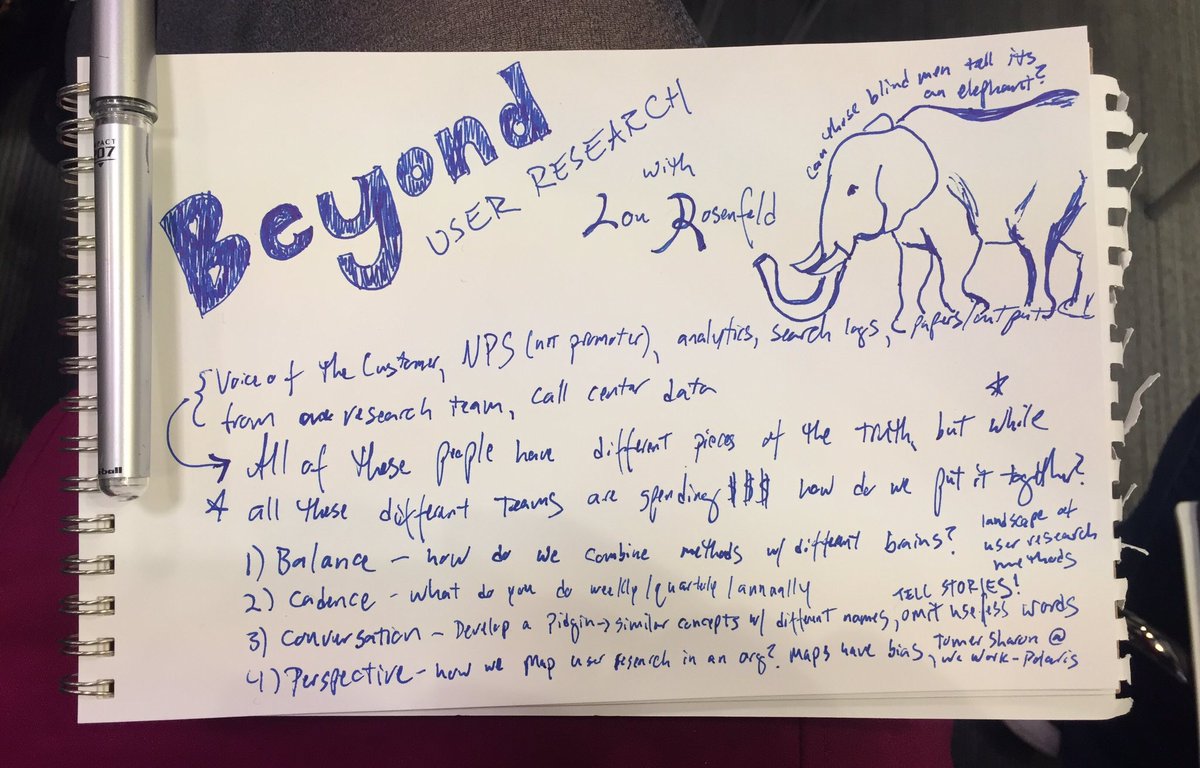 Beyond
USER RESEARCH
with
Lou Rosenfeld
can these blind men tell its
an elephant?
{ Voice of the Customer, NPS (net promoter), analytics, search logs, papers/outputs
from research team, call center data
→ All of these people have different pieces of the truth, but while
all these different teams are spending $$$ how do we put it together?
1) Balance - how do we combine methods w/ different brains?
landscape of
user research
methods
2) Cadence - what do you do weekly/quarterly/annually
3) Conversation - Develop a Pidgin → similar concepts w/ different names,
TELL STORIES!
omit useless words
4) Perspective - how we map user research in an org? maps have bias,
Tomer Sharon @
we work - Polaris